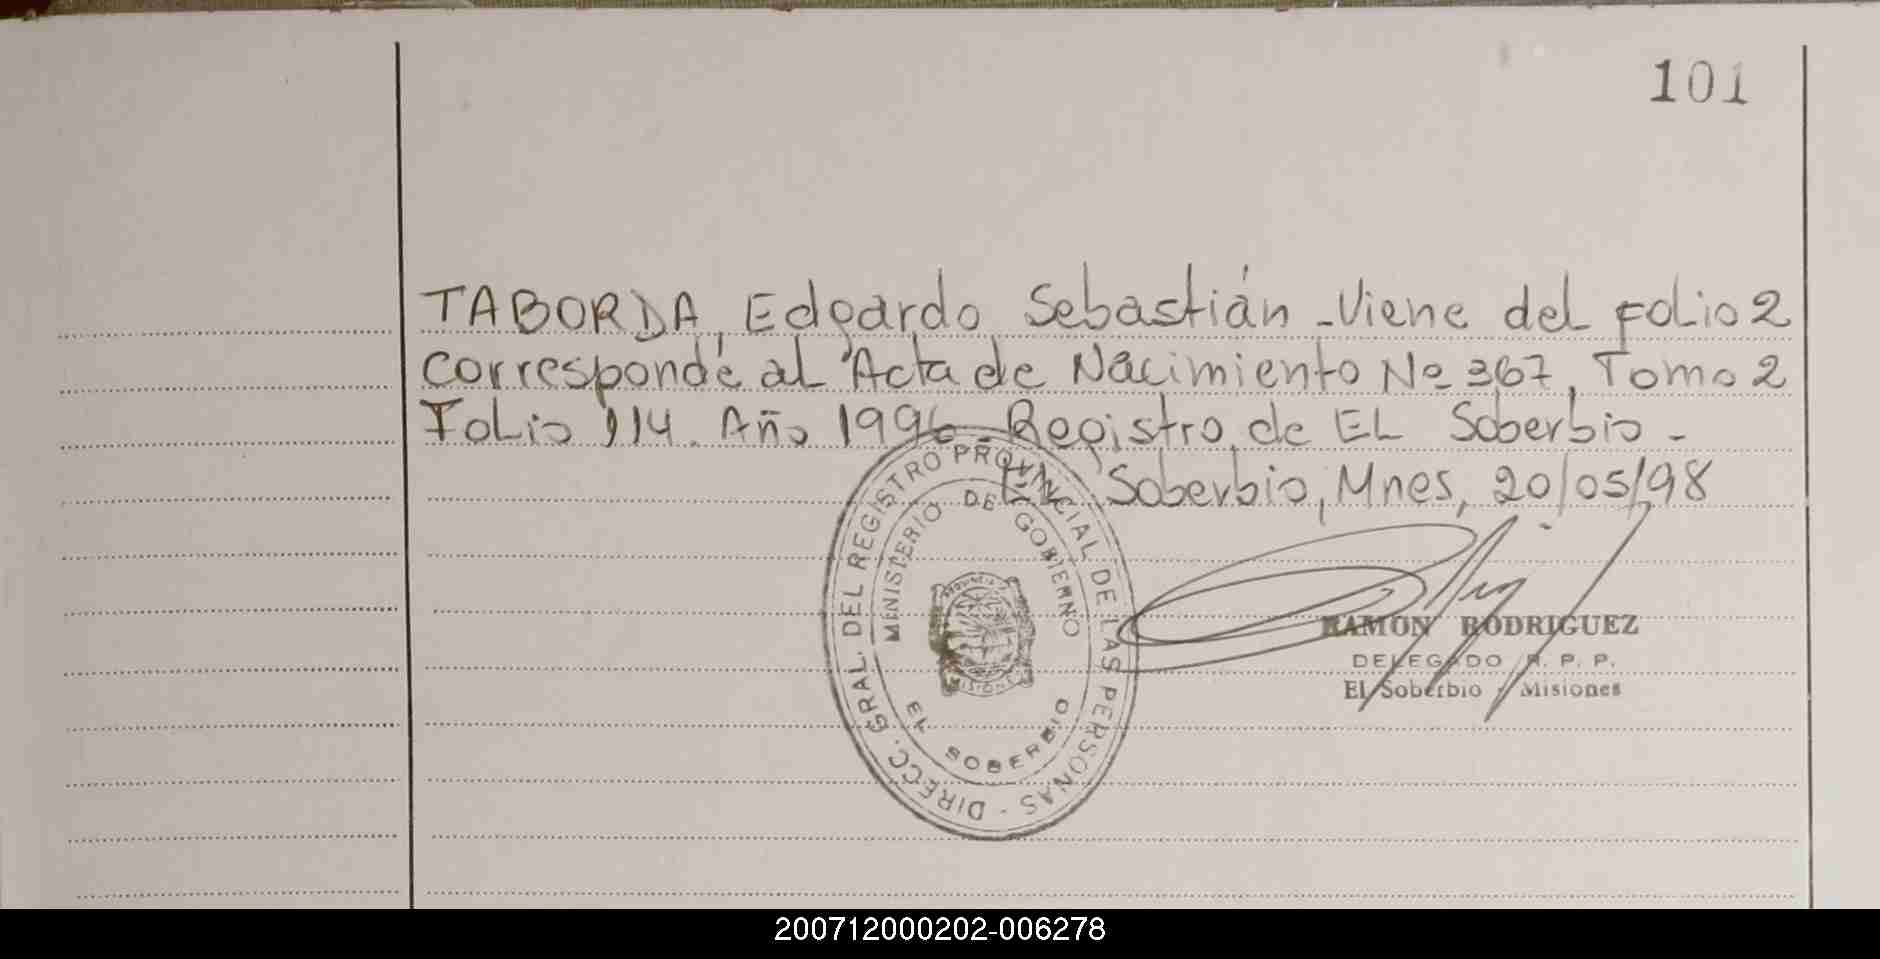 101
TABORDA, Edgardo Sebastián - Viene del Folio 2
corresponde al Acta de Nacimiento Nº 367, Tomo 2
Folio 114. Año 1996 - Registro de EL Soberbio -
EL Soberbio, Mnes, 20/05/98
DIRECC. GRAL. DEL REGISTRO PROVINCIAL DE LAS PERSONAS -
MINISTERIO DE GOBIERNO
PROVINCIA
MISIONES
EL SOBERBIO
RAMON RODRIGUEZ
DELEGADO R. P. P.
El Soberbio - Misiones
200712000202-006278